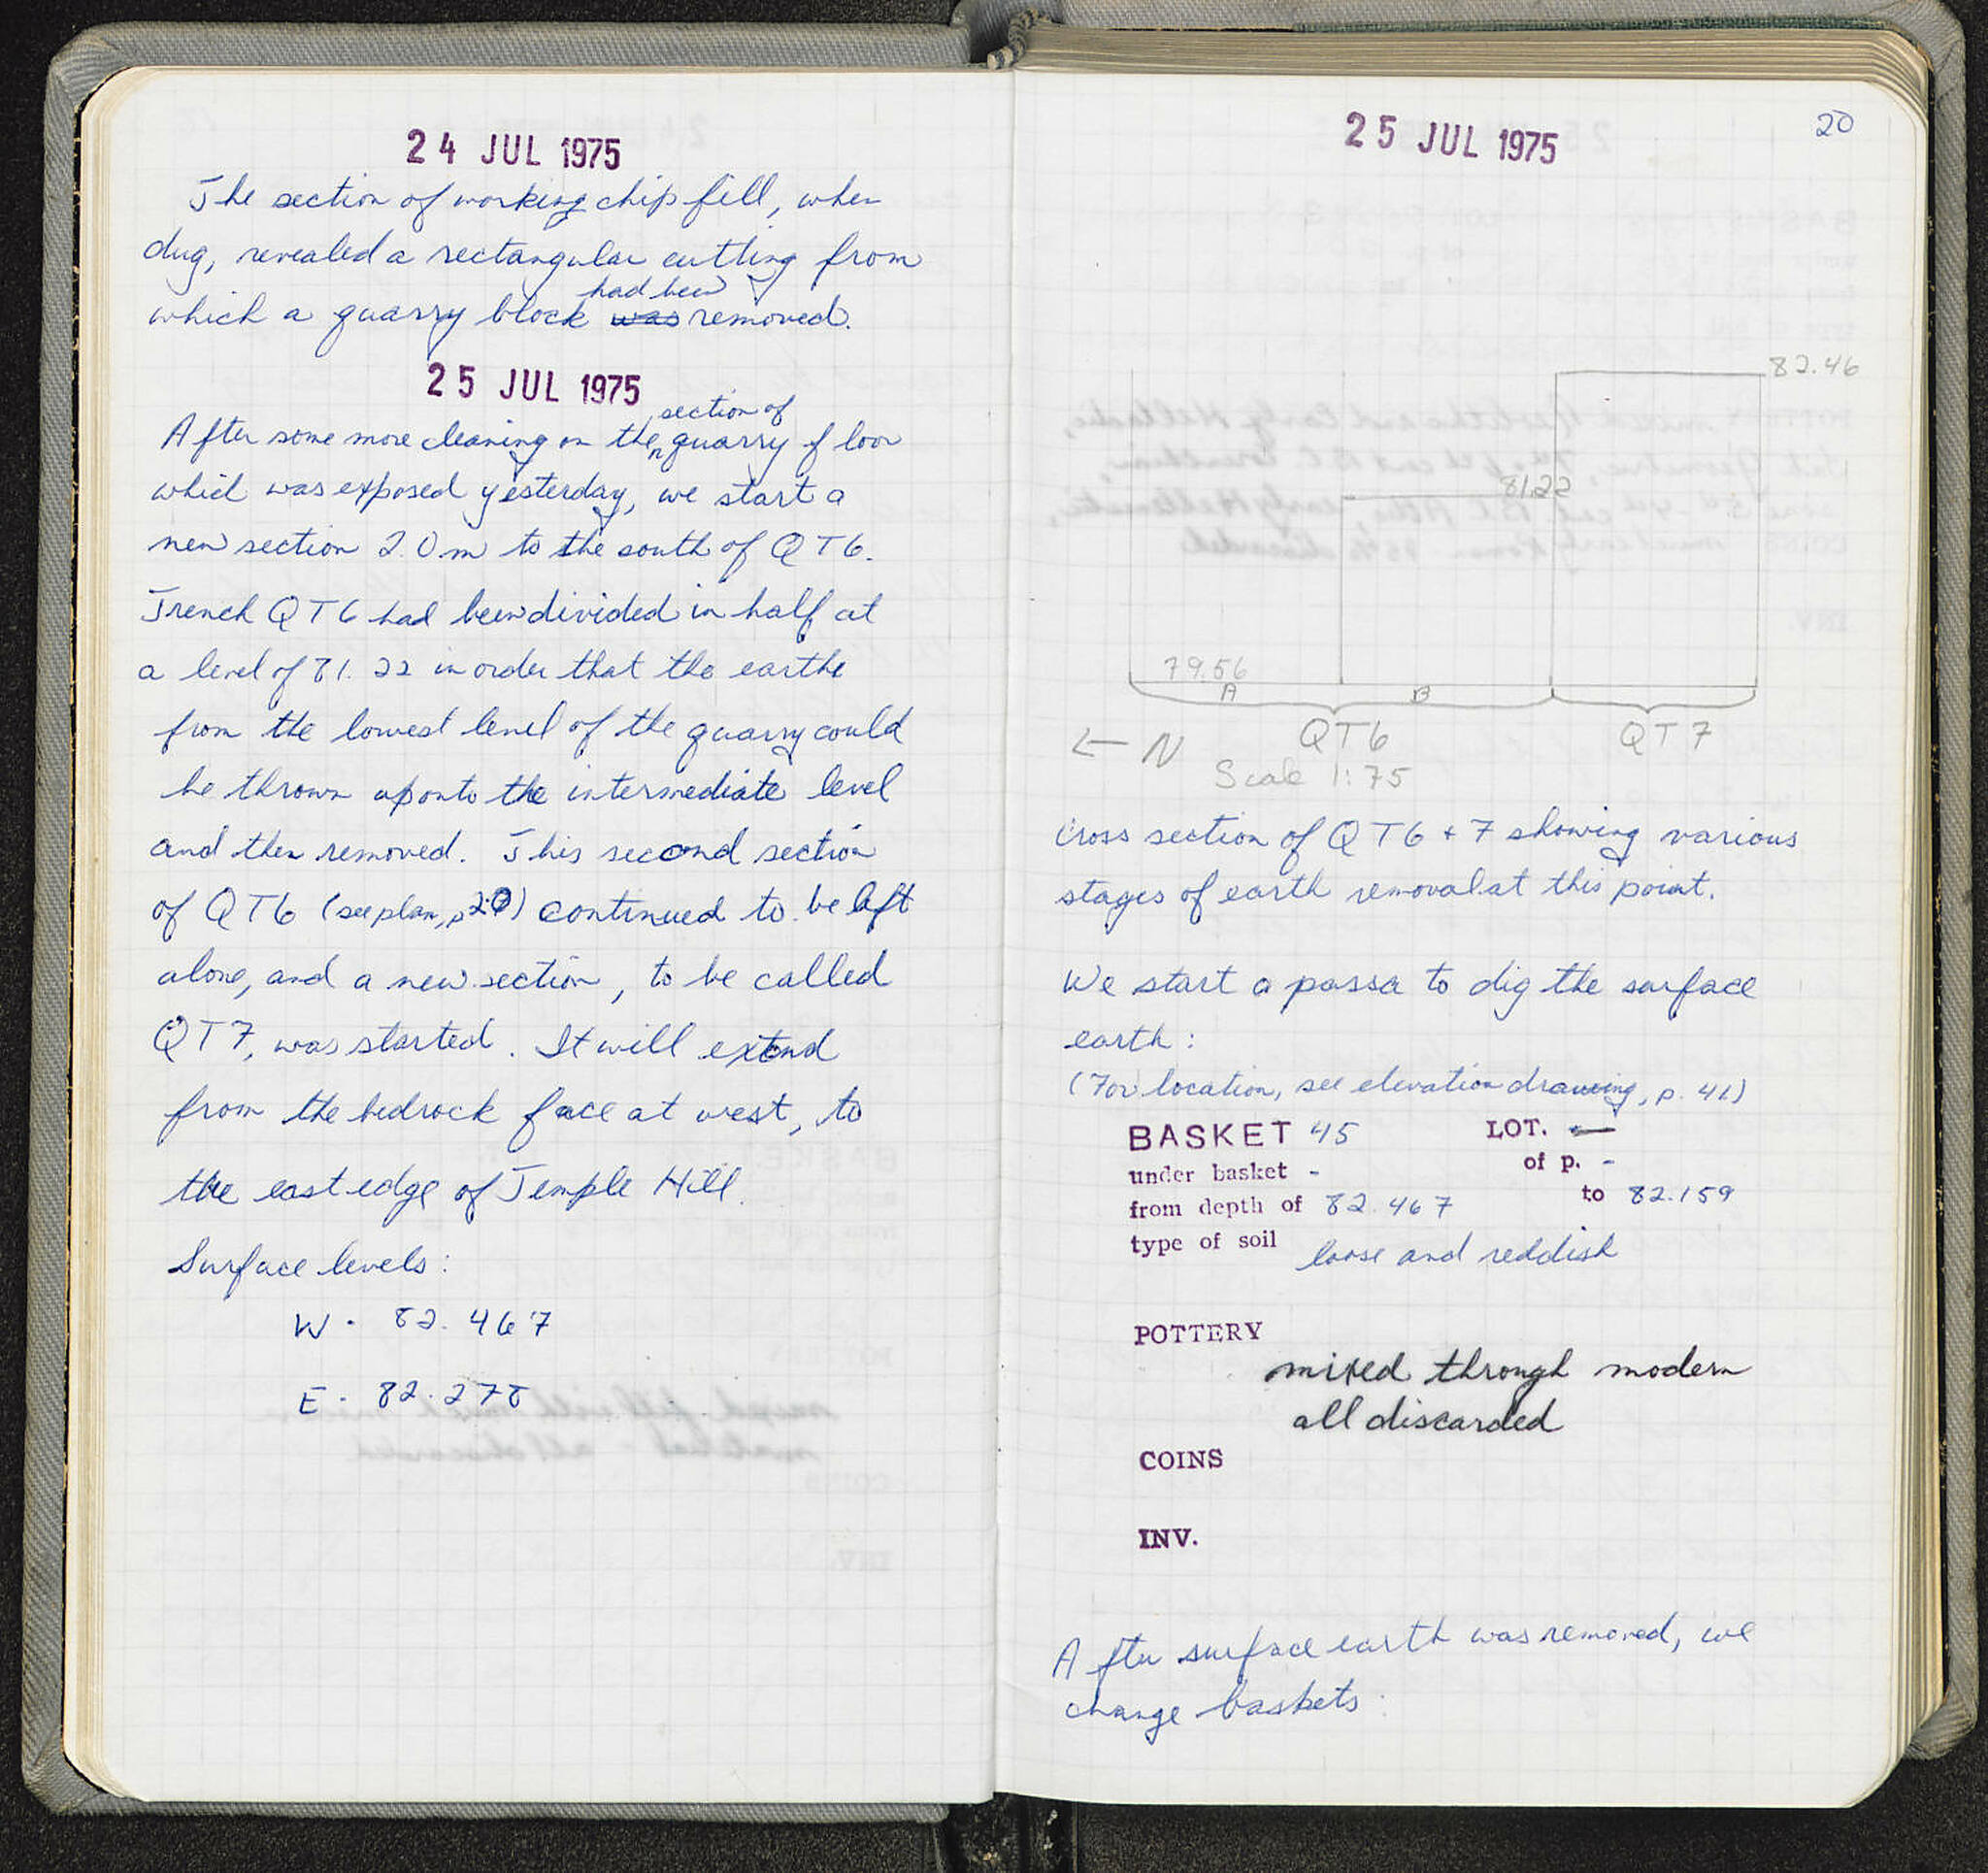 24 JUL 1975
The section of working chip fill, when
dug, revealed a rectangular cutting from
had been
which a quarry block was removed.
25 JUL 1975
section of
After some more cleaning on the quarry floor
which was exposed yesterday, we start a
new section 2.0 m to the south of QT6.
Trench QT6 had been divided in half at
a level of 81.22 in order that the earth
from the lowest level of the quarry could
be thrown up onto the intermediate level
and then removed. This second section
of QT6 (see plan, p 20) continued to be left
alone, and a new section, to be called
QT7, was started. It will extend
from the bedrock face at west, to
the east edge of Temple Hill.
Surface levels:
W - 82.467
E - 82.278
25 JUL 1975
20
82.46
81.22
79.56
A B
QT6 QT7
← N
Scale 1:75
Cross section of QT6 + 7 showing various
stages of earth removal at this point.
We start a passa to dig the surface
earth:
(For location, see elevation drawing, p. 41)
BASKET 45 LOT. —
under basket - of p. -
from depth of 82.467 to 82.159
type of soil loose and reddish
POTTERY
mixed through modern
all discarded
COINS
INV.
After surface earth was removed, we
change baskets: